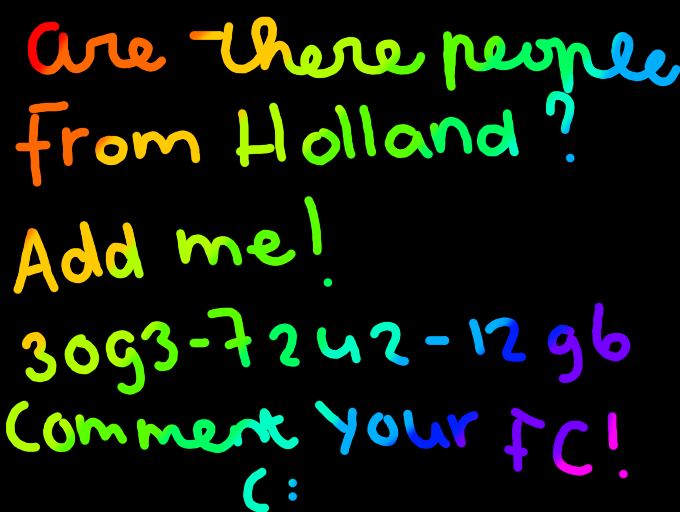 are there people
From Holland?
Add me!
3093-7242-1296
Comment your FC!
C: